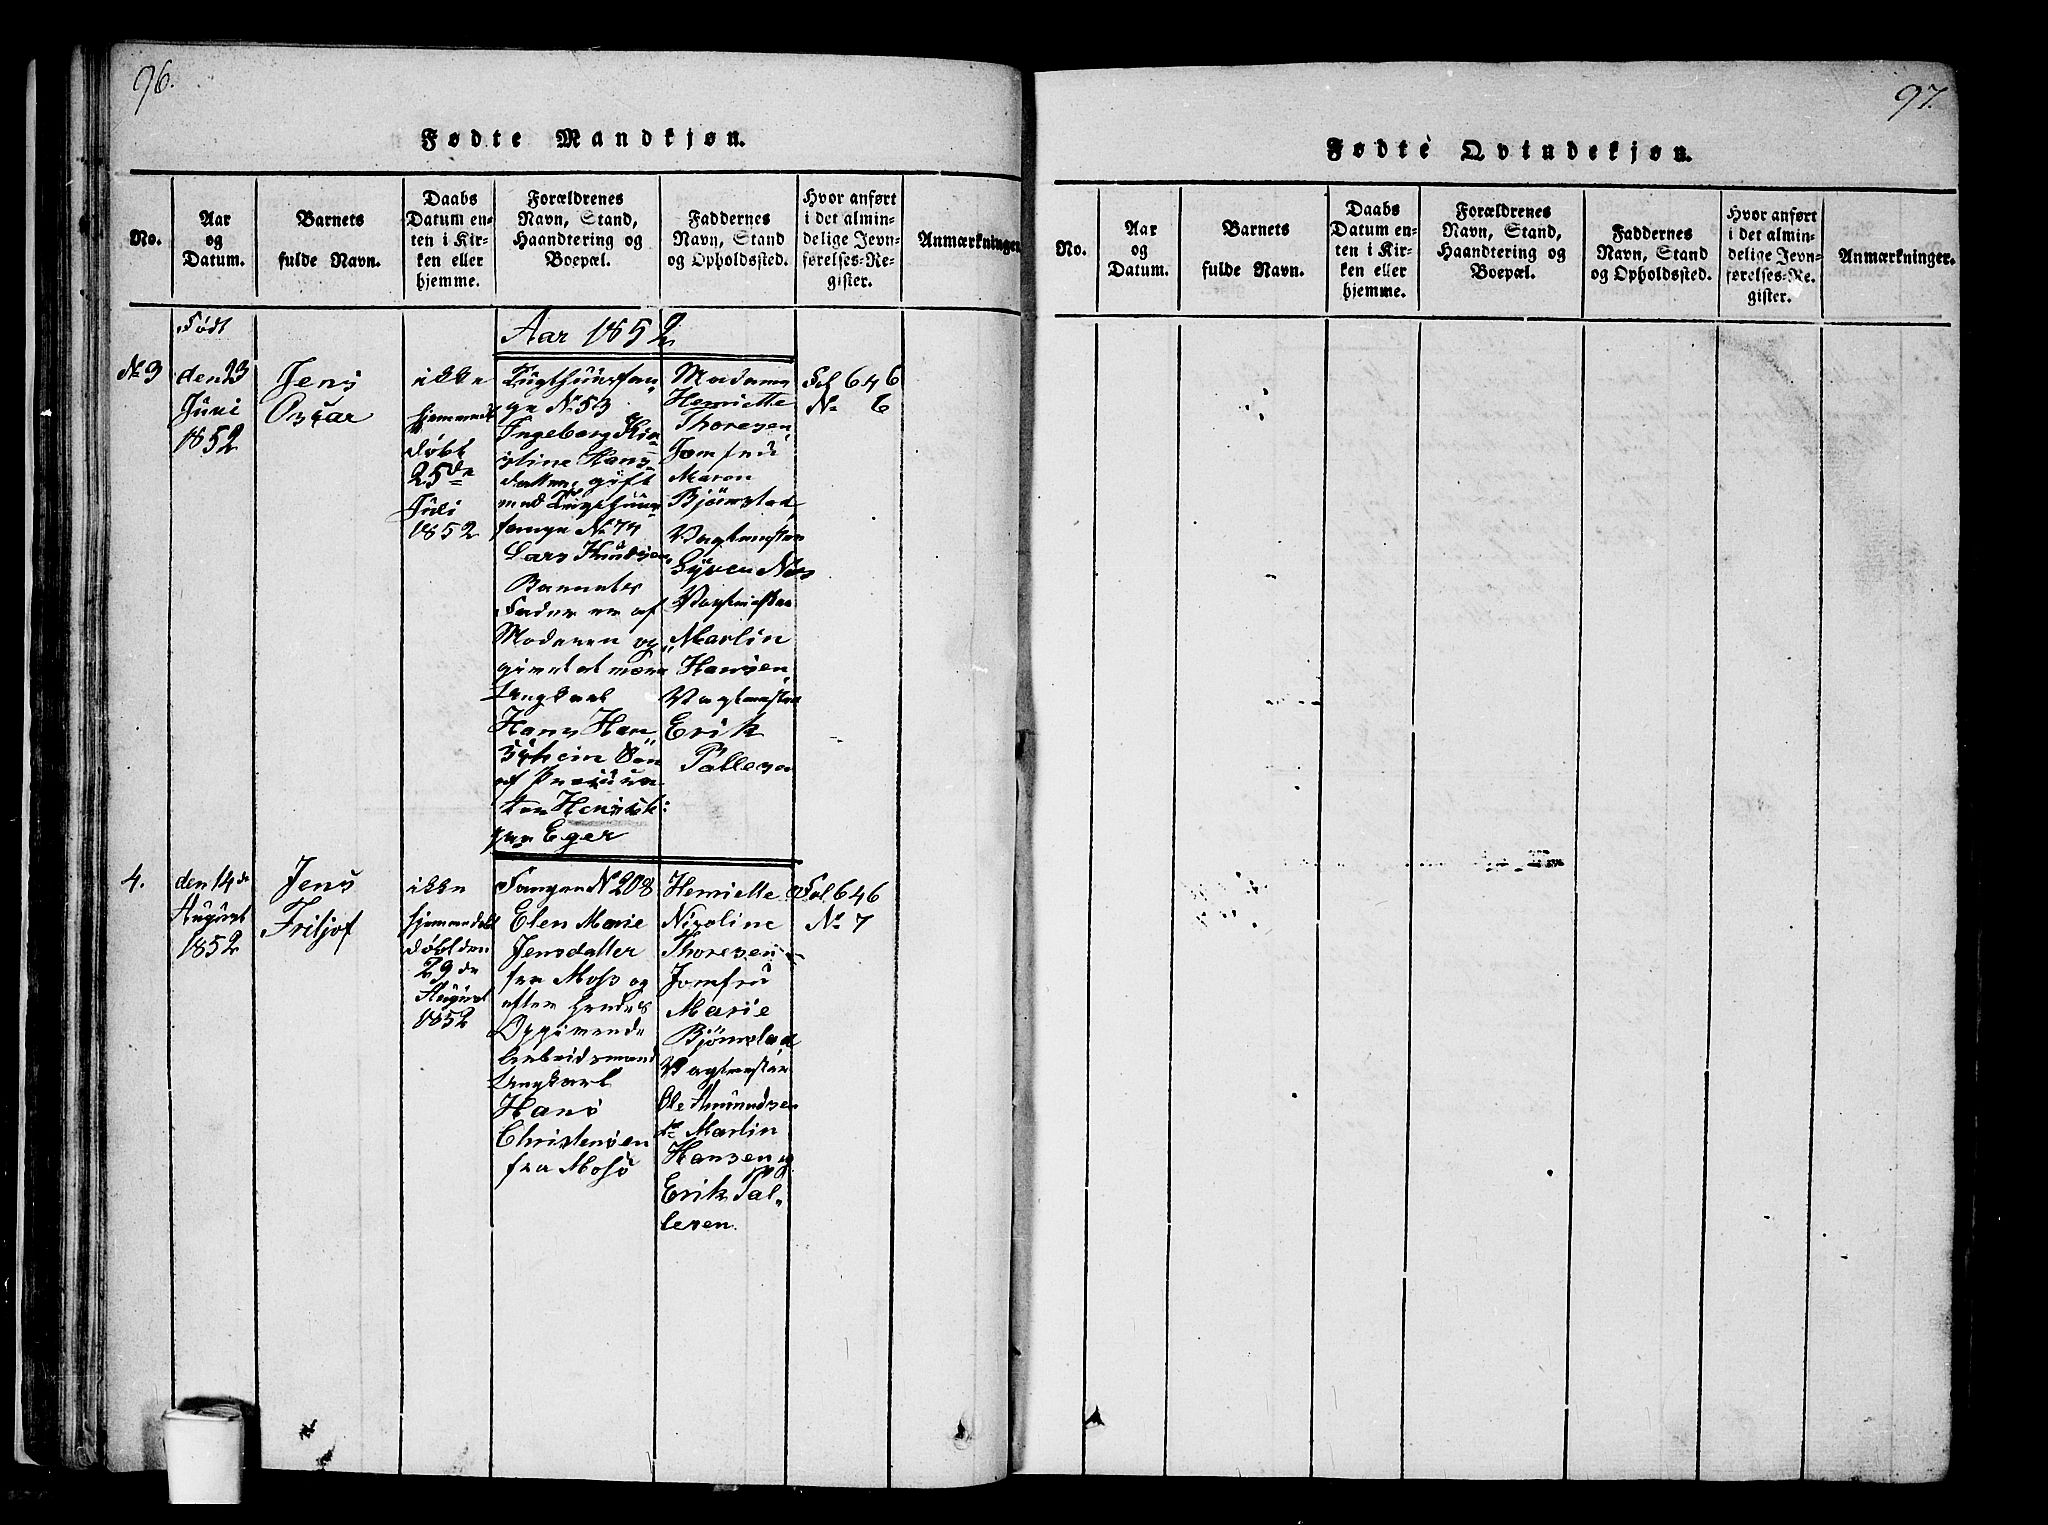 96.
Fødte Mandkjøn.
No.
Aar
og
Datum.
Barnets
fulde Navn.
Daabs
Datum en-
ten i Kir-
ken eller
hjemme.
Forældrenes
Navn, Stand,
Haandtering og
Boepæl.
Faddernes
Navn, Stand
og Opholdssted.
Hvor anført
i det almin-
delige Jevn-
førelses-Re-
gister.
Anmærkninger.
Aar 1852
Født
No 3
den 23
Juni
1852
Jens
Oscar
ikke
hjemmedøbt
døbt
25de
Juli
1852
Tugthuusfan-
ge No 53
Ingeborg Kir-
stine Hans-
datter, gift
med Tugthuus-
fange No 74
Lars Knudsen,
Barnets
Fader er af
Moderen op-
givet at være
Ungkarl
Hans Han-
Søn
af
Eger
Madame
Henriette
Thoresen,
Jomfru
Maren
Bjørnstad,
Vagtmester
Syver Næs
Vagtmester
Martin
Hansen,
Vagtmester
Erik
Pallesen
Fol 646
No 6
4.
den 14de
August
1852
Jens
Fritjof
ikke
hjemmedøbt
døbt den
29de
August
1852
Fangen No 208
Elen Marie
Jensdatter
fra Moss og
efter hendes
Opgivende
Arbeidsmand
Ungkarl
Hans
Christensen
fra Moss
Henriette
Nicoline
Thoresen
Jomfru
Marie
Bjørnstad
Vagtmester
Ole Amundsen
do Martin
Hansen og
Erik Pal-
lesen.
Fol 646
No 7
97.
Fødte Qvindekjøn.
No.
Aar
og
Datum.
Barnets
fulde Navn.
Daabs
Datum en-
ten i Kir-
ken eller
hjemme.
Forældrenes
Navn, Stand,
Haandtering og
Boepæl.
Faddernes
Navn, Stand
og Opholdssted.
Hvor anført
i det almin-
delige Jevn-
førelses-Re-
gister.
Anmærkninger.